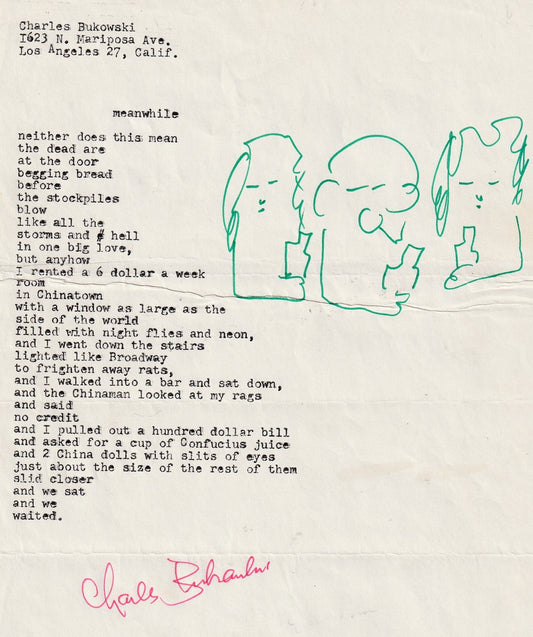 Charles Bukowski
1623 N. Mariposa Ave.
Los Angeles 27, Calif.
meanwhile
neither does this mean
the dead are
at the door
begging bread
before
the stockpiles
blow
like all the
storms and hell
in one big love,
but anyhow
I rented a 6 dollar a week
room
in Chinatown
with a window as large as the
side of the world
filled with night flies and neon,
and I went down the stairs
lighted like Broadway
to frighten away rats,
and I walked into a bar and sat down,
and the Chinaman looked at my rags
and said
no credit
and I pulled out a hundred dollar bill
and asked for a cup of Confucius juice
and 2 China dolls with slits of eyes
just about the size of the rest of them
slid closer
and we sat
and we
waited.
Charles Bukowski